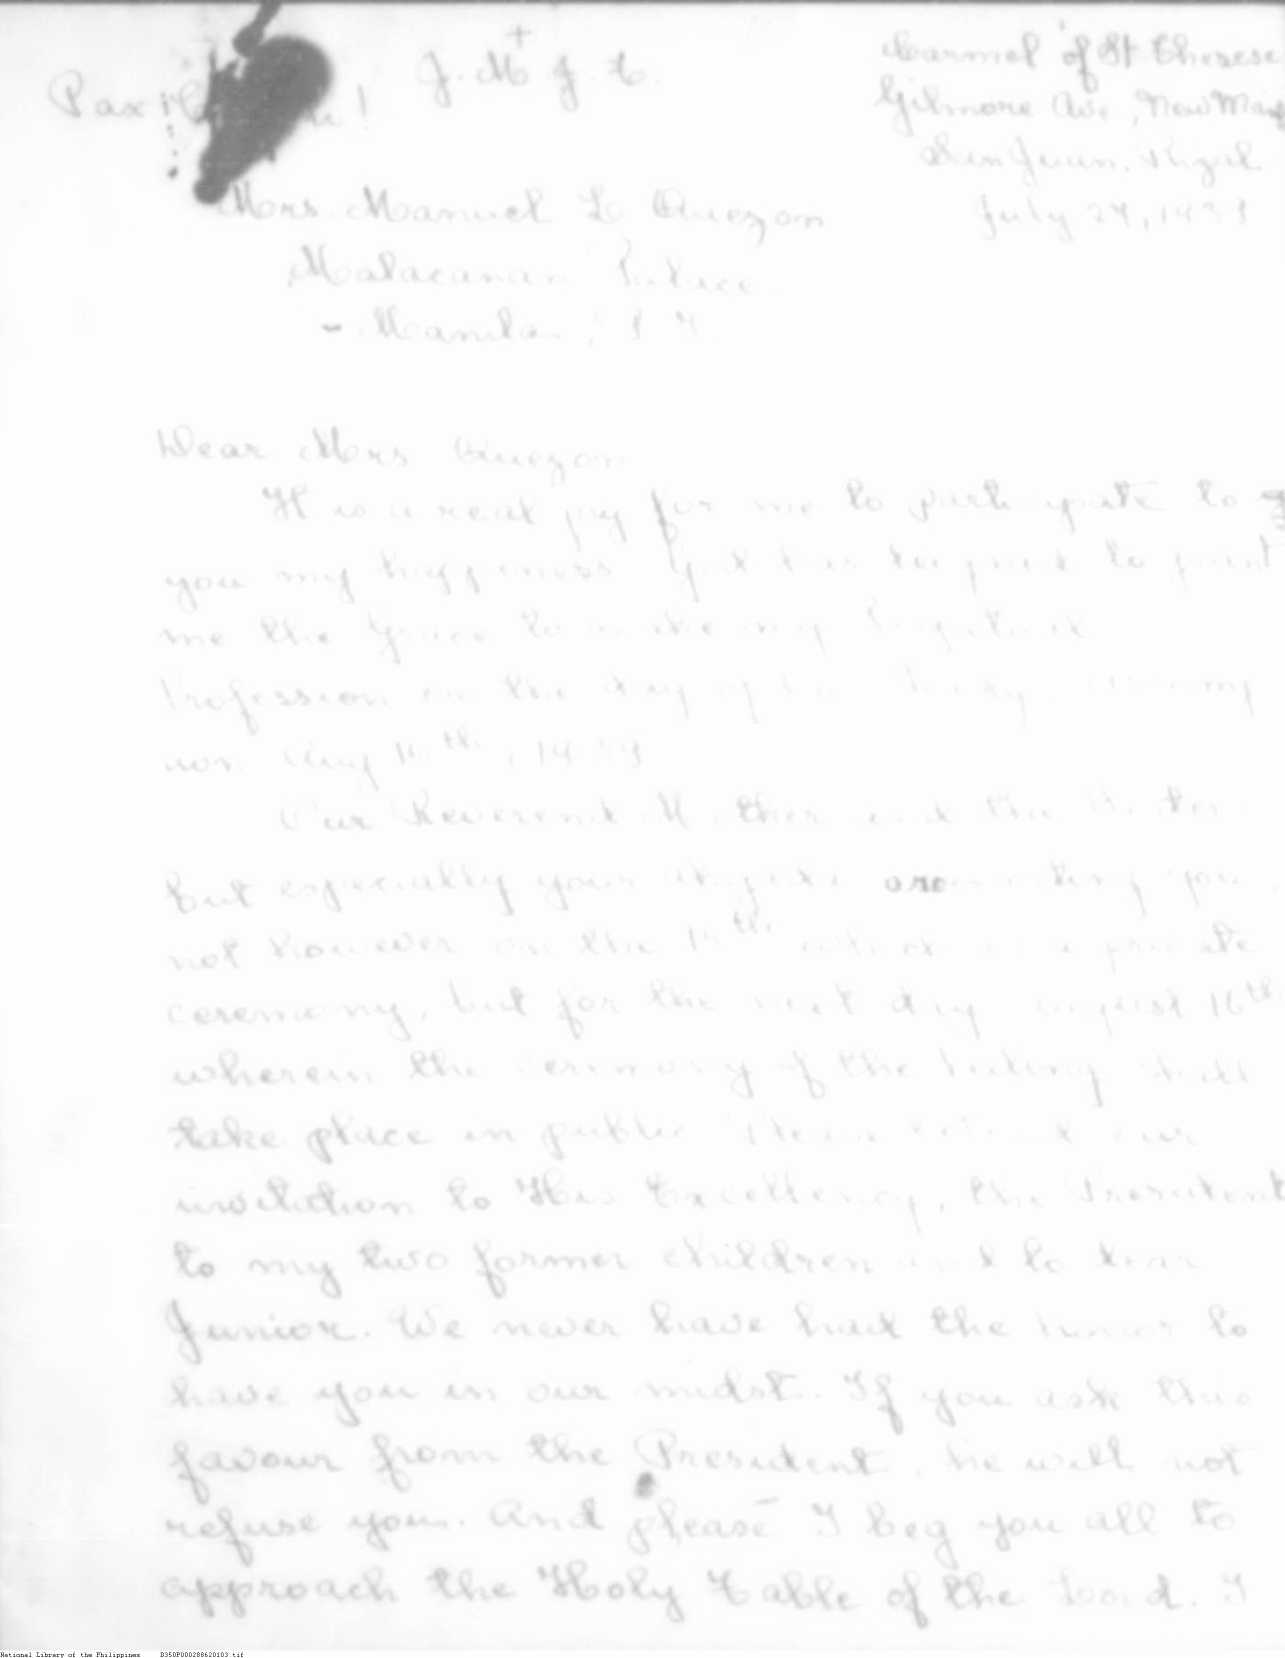 Pax
J. M. J. T.
Carmel of St Therese
Gilmore Ave, New
San Juan, Rizal
July
Mrs. Manuel L Quezon
Malacanan Palace
- Manila, P I
Dear Mrs Quezon
It is a real joy for me to participate to
you my happiness God has to grant
me the Grace to make my Perpetual
Profession on the day of
Aug th,
Our Reverend Mother and the
but especially your are inviting you,
not however on the th which is a private
ceremony, but for the next day august 16th
wherein the ceremony of the Veiling shall
take place in public Please extend our
invitation to His Excellency, the President
to my two former children and to dear
Junior. We never have had the honor to
have you in our midst. If you ask this
favour from the President, he will not
refuse you. And please I beg you all to
approach the Holy Table of the Lord. I
National Library of the Philippines D350P000288620103.tif